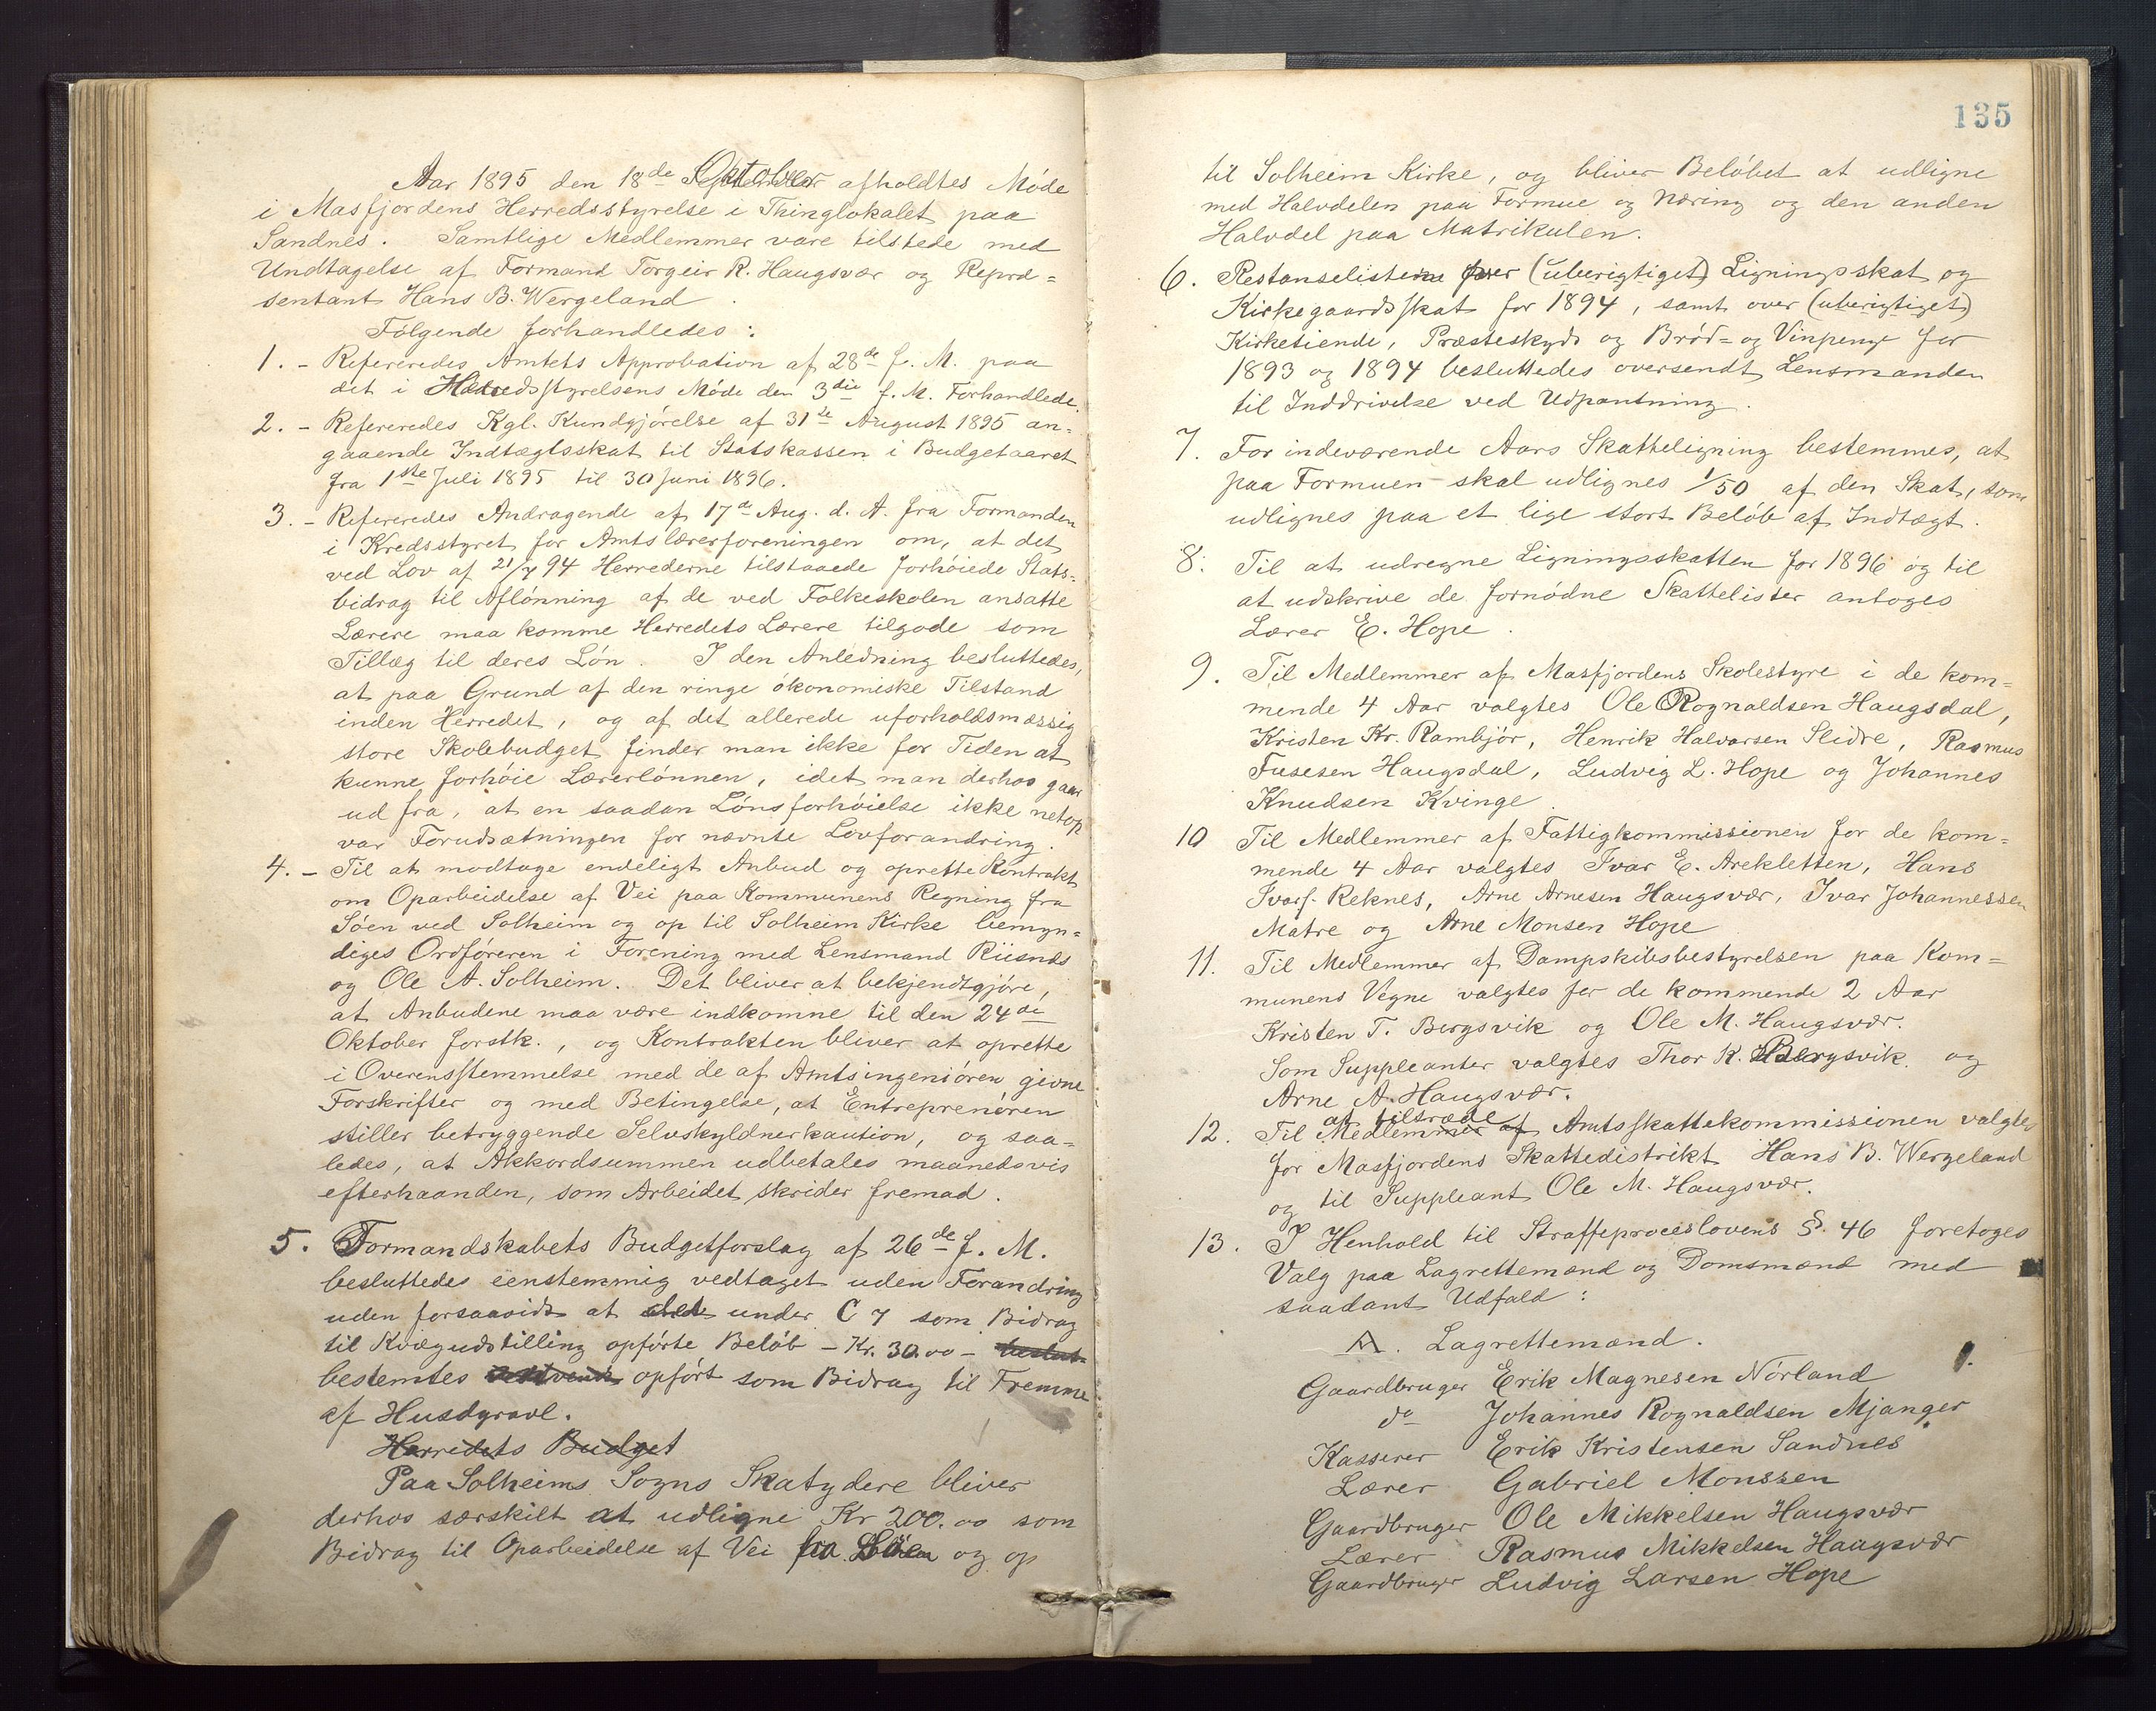 Aar 1895 den 18de Oktober afholdtes Møde
i Masfjordens Herredsstyrelse i Thinglokalet paa
Sandnes. Samtlige Medlemmer vare tilstede med
Undtagelse af Formand Torgeir R. Haugsvær og Repræ=
sentant Hans B. Wergeland.
Følgende forhandledes:
1. - Refereredes Amtets Approbation af 28de f. M. paa
det i Herredsstyrelsens Møde den 3die f. M. Forhandlede.
2. - Refereredes Kgl. Kundgjørelse af 31te August 1895 an=
gaaende Indtægtsskat til Statskassen i Budgetaaret
fra 1ste Juli 1895 til 30 Juni 1896.
3. - Refereredes Andragende af 17de Aug. d. A. fra Formanden
i Kredsstyret for Amtslærerforeningen om, at det
ved Lov af 21/7 94 Herrederne tilstaaede forhøiede Stats=
bidrag til Aflønning af de ved Folkeskolen ansatte
Lærere maa komme Herredets Lærere tilgode som
Tillæg til deres Løn. I den Anledning besluttedes,
at paa Grund af den ringe økonomiske Tilstand
inden Herredet, og af det allerede uforholdsmæssig
store Skolebudget finder man ikke for Tiden at
kunne forhøie Lærerlønnen, idet man derhos gaar
ud fra, at en saadan Lønsforhøielse ikke netop
var Forudsætningen for nævnte Lovforandring.
4. - Til at modtage endeligt Anbud og oprette Kontrakt
om Oparbeidelse af Vei paa Kommunens Regning fra
Søen ved Solheim og op til Solheim Kirke bemyn=
diges Ordføreren i Forening med Lensmand Riisnæs
og Ole A. Solheim. Det bliver at bekjendtgjøre,
at Anbudene maa være indkomne til den 24de
Oktober førstk., og Kontrakten bliver at oprette
i Overensstemmelse med de af Amtsingeniøren givne
Forskrifter og med Betingelse, at Entreprenøren
stiller betryggende Selvskyldnerkaution, og saa=
ledes, at Akkordsummen udbetales maanedsvis
efterhaanden, som Arbeidet skrider fremad.
5. Formandskabets Budgetforslag af 26de f. M.
besluttedes eenstemmig vedtaget uden Forandring
uden forsaavidt at det under C 7 som Bidrag
til Kvægudstilling opførte Beløb - Kr. 30.00 - beslut=
bestemtes opført som Bidrag til Fremme
af Husdyravl.
Herredets Budget
Paa Solheims Sogns Skatydere bliver
derhos særskilt at udligne Kr 200.00 som
Bidrag til Oparbeidelse af Vei fra Søen og op
135
til Solheim Kirke, og bliver Beløbet at udligne
med Halvdelen paa Formue og Næring og den anden
Halvdel paa Matrikulen.
6. Restanselisterne over (uberigtiget) Ligningsskat og
Kirkegaardsskat for 1894, samt over (uberigtiget)
Kirketiende, Præsteskyds og Brød= og Vinpenge for
1893 og 1894 besluttedes oversendt Lensmanden
til Inddrivelse ved Udpantning.
7. For indeværende Aars Skatteligning bestemmes, at
paa Formuen skal udlignes 1/50 af den Skat, som
udlignes paa et lige stort Beløb af Indtægt.
8. Til at udregne Ligningsskatten for 1896 og til
at udskrive de fornødne Skattelister antoges
Lærer E. Hope.
9. Til Medlemmer af Masfjordens Skolestyre i de kom=
mende 4 Aar valgtes Ole Rognaldsen Haugsdal,
Kristen Kr. Rambjør, Henrik Halvorsen Sleire, Rasmus
Fusesen Haugsdal, Ludvig L. Hope og Johannes
Knudsen Kvinge.
10 Til Medlemmer af Fattigkommissionen for de kom=
mende 4 Aar valgtes Ivar E. Arekletten, Hans
Ivars. Reknes, Arne Arnesen Haugsvær, Ivar Johannessen
Matre og Arne Monsen Hope
11. Til Medlemmer af Dampskibsbestyrelsen paa Kom=
munens Vegne valgtes for de kommende 2 Aar
Kristen T. Bergsvik og Ole M. Haugsvær.
Som Suppleanter valgtes Thor K. Bergsvik og
Arne A. Haugsvær.
at tiltræde
12. Til Medlemmer af Amtsskattekommissionen valgtes
for Masfjordens Skattedistrikt Hans B. Wergeland
og til Suppleant Ole M. Haugsvær.
13. I Henhold til Straffeproceslovens §. 46 foretoges
Valg paa Lagrettemænd og Domsmænd med
saadant Udfald:
A. Lagrettemænd.
Gaardbruger Erik Magnesen Nørland
do Johannes Rognaldsen Mjanger
Kasserer Erik Kristensen Sandnes
Lærer Gabriel Monssen
Gaardbruger Ole Mikkelsen Haugsvær
Lærer Rasmus Mikkelsen Haugsvær
Gaardbruger Ludvig Larsen Hope